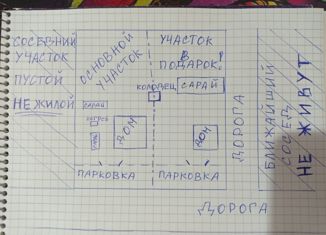 СОСЕДНИЙ
УЧАСТОК
ПУСТОЙ
НЕ ЖИЛОЙ
ОСНОВНОЙ
УЧАСТОК
УЧАСТОК
В
ПОДАРОК!
КОЛОДЕЦ
САРАЙ
САРАЙ
ПОГРЕБ
ДОМ
ДОМ
ПАРКОВКА
ПАРКОВКА
ДОРОГА
БЛИЖАЙШИЙ
СОСЕД
НЕ ЖИВУТ
ДОРОГА